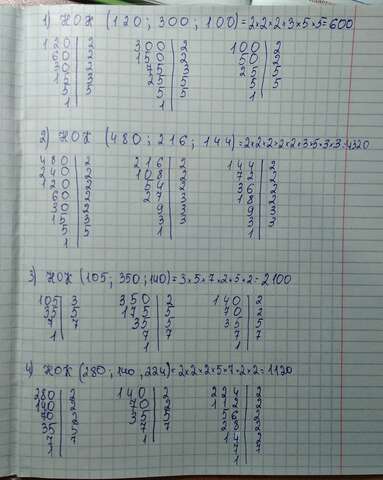 1) НОК (120; 300; 100)=2×2×2×3×5×5=600
120|2 300|2 100|2
60|2 150|2 50|2
30|2 75|3 25|5
15|3 25|5 5|5
5|5 5|5 1
1 1
2) НОК (480; 216; 144)=2×2×2×2×2×3×5×3×3=4320
480|2 216|2 144|2
240|2 108|2 72|2
120|2 54|2 36|2
60|2 27|3 18|2
30|2 9|3 9|3
15|3 3|3 3|3
5|5 1 1
1
3) НОК (105; 350; 140)=3×5×7×2×5×2=2100
105|3 350|2 140|2
35|5 175|5 70|2
7|7 35|5 35|5
1 7|7 7|7
1 1
4) НОК (280; 140; 224)=2×2×2×5×7×2×2=1120
280|2 140|2 224|2
140|2 70|2 112|2
70|2 35|5 56|2
35|5 7|7 28|2
7|7 1 14|2
1 7|7
1